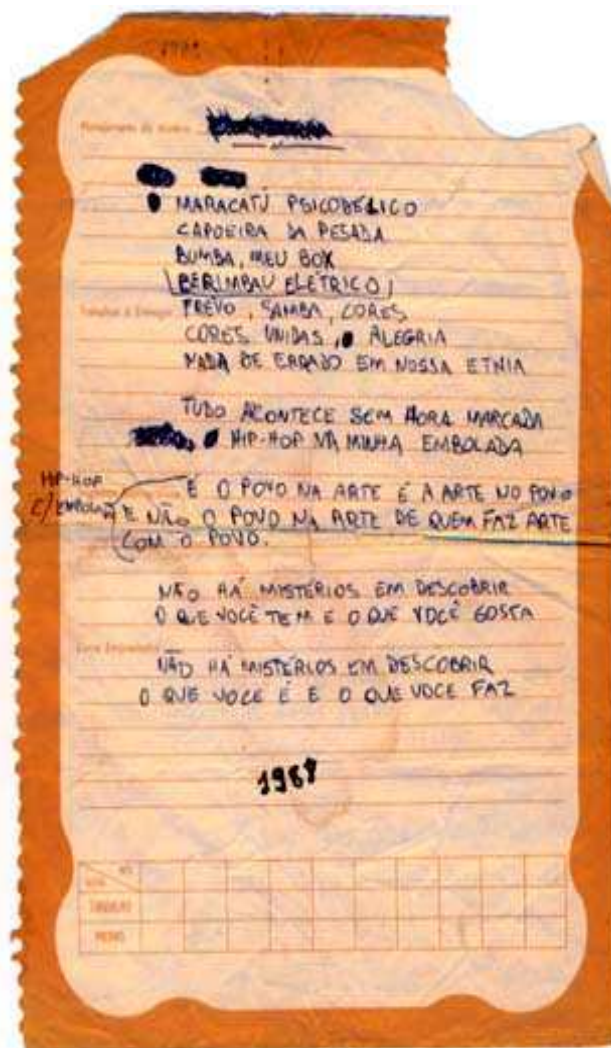 MARACATÚ PSICODÉLICO
CAPOEIRA DA PESADA
BUMBA, MEU BOX
BERIMBAU ELÉTRICO
FREVO, SAMBA, CORES
CORES UNIDAS, ALEGRIA
NADA DE ERRADO EM NOSSA ETNIA
TUDO ACONTECE SEM HORA MARCADA
HIP-HOP NA MINHA EMBOLADA
HIP-HOP
C/ EMBOLADA
É O POVO NA ARTE É A ARTE NO POVO
E NÃO O POVO NA ARTE DE QUEM FAZ ARTE
COM O POVO.
NÃO HÁ MISTÉRIOS EM DESCOBRIR
O QUE VOCÊ TEM E O QUE VOCÊ GOSTA
NÃO HÁ MISTÉRIOS EM DESCOBRIR
O QUE VOCE É E O QUE VOCE FAZ
1989